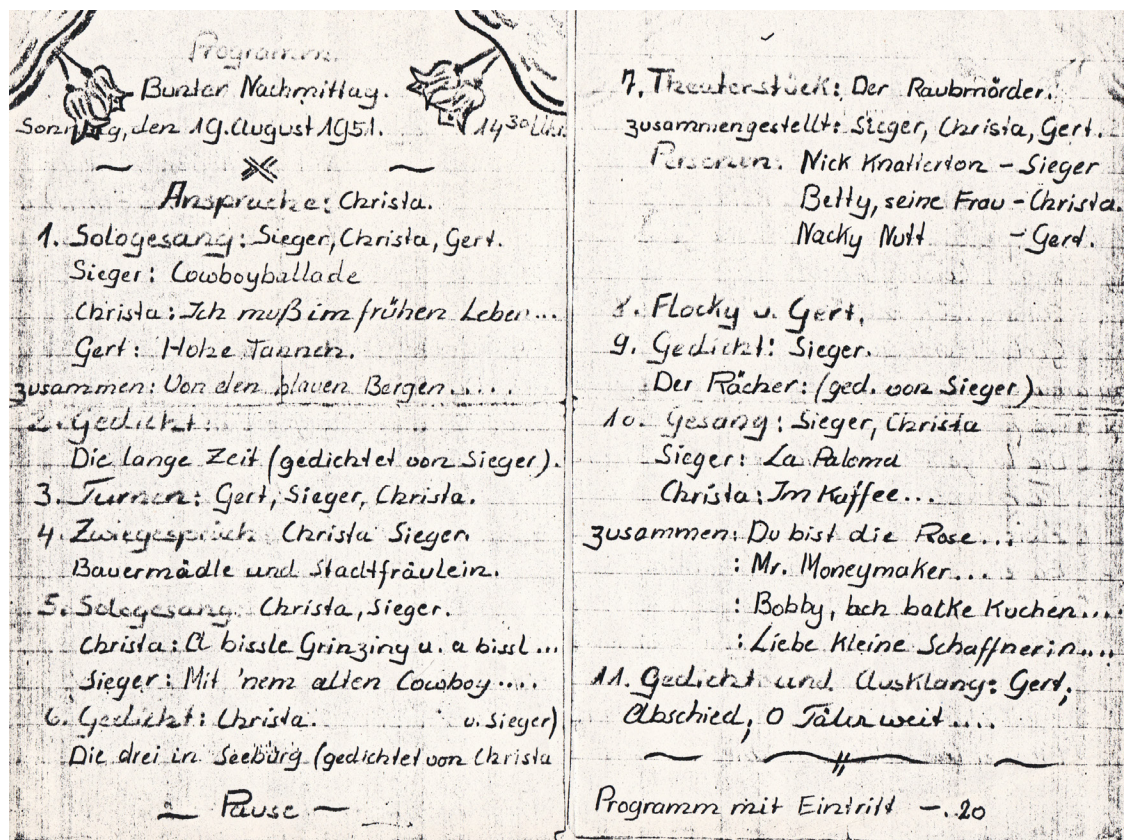 Programm.
Bunter Nachmittag.
Sonntag, den 19. August 1951. 14 30 Uhr.
Ansprache: Christa.
1. Sologesang: Sieger, Christa, Gert.
Sieger: Cowboyballade
Christa: Ich muß im frühen Leben...
Gert: Hohe Tannen.
zusammen: Von den blauen Bergen.....
2. Gedicht:
Die lange Zeit (gedichtet von Sieger).
3. Turnen: Gert, Sieger, Christa.
4. Zwiegespräch Christa Sieger.
Bauermädle und Stadtfräulein.
5. Sologesang: Christa, Sieger.
Christa: A bissle Grinzing u. a bissl...
Sieger: Mit 'nem alten Cowboy....
6. Gedicht: Christa. u. Sieger)
Die drei in Seeburg (gedichtet von Christa
— Pause —
7. Theaterstück: Der Raubmörder.
zusammengestellt: Sieger, Christa, Gert.
Personen: Nick Knatterton - Sieger
Betty, seine Frau - Christa.
Nacky Nutt - Gert.
8. Flocky u. Gert.
9. Gedicht: Sieger.
Der Rächer: (ged. von Sieger)
10. Gesang: Sieger, Christa
Sieger: La Paloma
Christa: Im Kaffee...
zusammen: Du bist die Rose...
: Mr. Moneymaker...
: Bobby, bch batke Kuchen....
: Liebe kleine Schaffnerin....
11. Gedicht und Ausklang: Gert,
Abschied, O Täler weit....
Programm mit Eintritt —.20